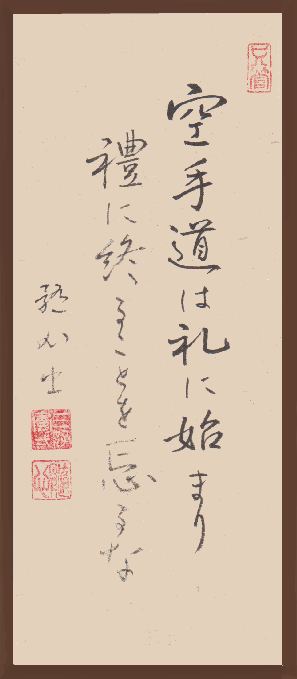 空手道は礼に始まり
禮に終ることを忘るな